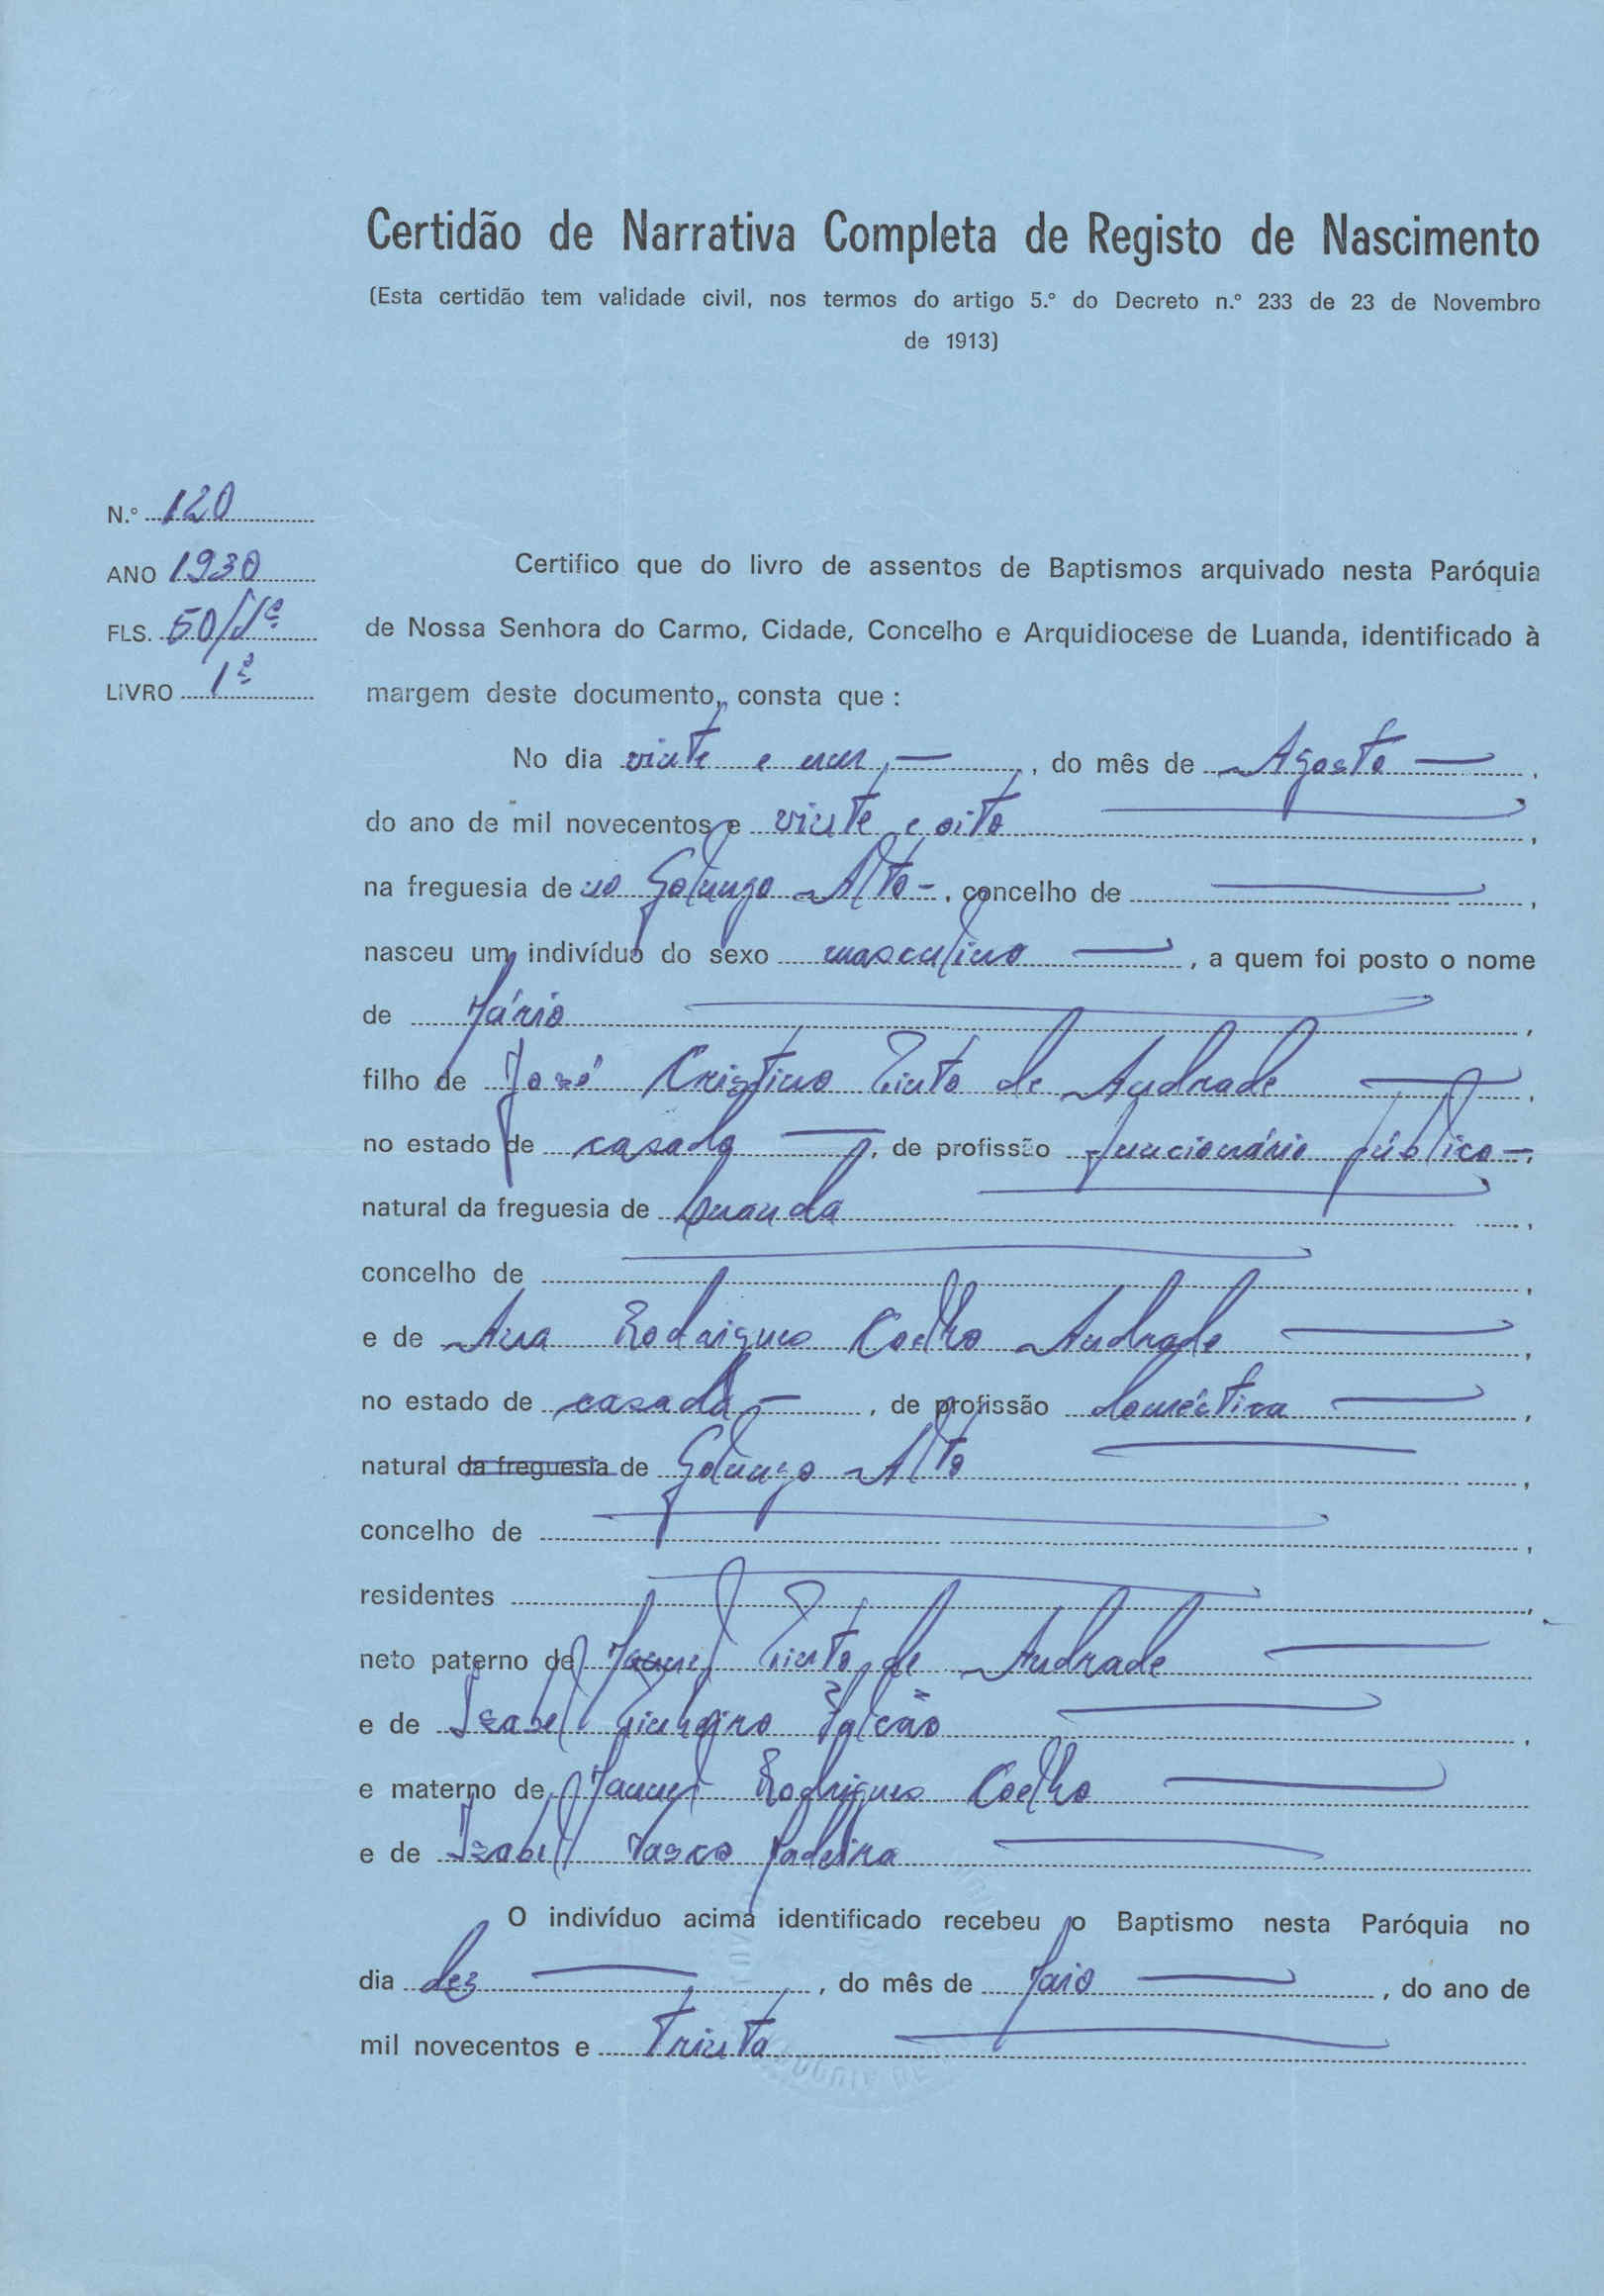 Certidão de Narrativa Completa de Registo de Nascimento
(Esta certidão tem validade civil, nos termos do artigo 5.º do Decreto n.º 233 de 23 de Novembro
de 1913)
N.º 120
ANO 1930
FLS. 50/Vº
LIVRO 1º
Certifico que do livro de assentos de Baptismos arquivado nesta Paróquia
de Nossa Senhora do Carmo, Cidade, Concelho e Arquidiocese de Luanda, identificado à
margem deste documento, consta que :
No dia vinte e um, do mês de Agosto,
do ano de mil novecentos e vinte e oito,
na freguesia de no Golungo Alto, concelho de
nasceu um indivíduo do sexo masculino, a quem foi posto o nome
de Mário,
filho de José Cristino Pinto de Andrade,
no estado de casado, de profissão funcionário público,
natural da freguesia de Luanda,
concelho de
e de Ana Rodrigues Coelho Andrade,
no estado de casada, de profissão doméstica,
natural da freguesia de Golungo Alto,
concelho de
residentes
neto paterno de Manuel Pinto de Andrade
e de Izabel Pinheiro Falcão
e materno de Manuel Rodrigues Coelho
e de Izabel Vasco Madeira
O indivíduo acima identificado recebeu o Baptismo nesta Paróquia no
dia dez, do mês de Maio, do ano de
mil novecentos e trinta